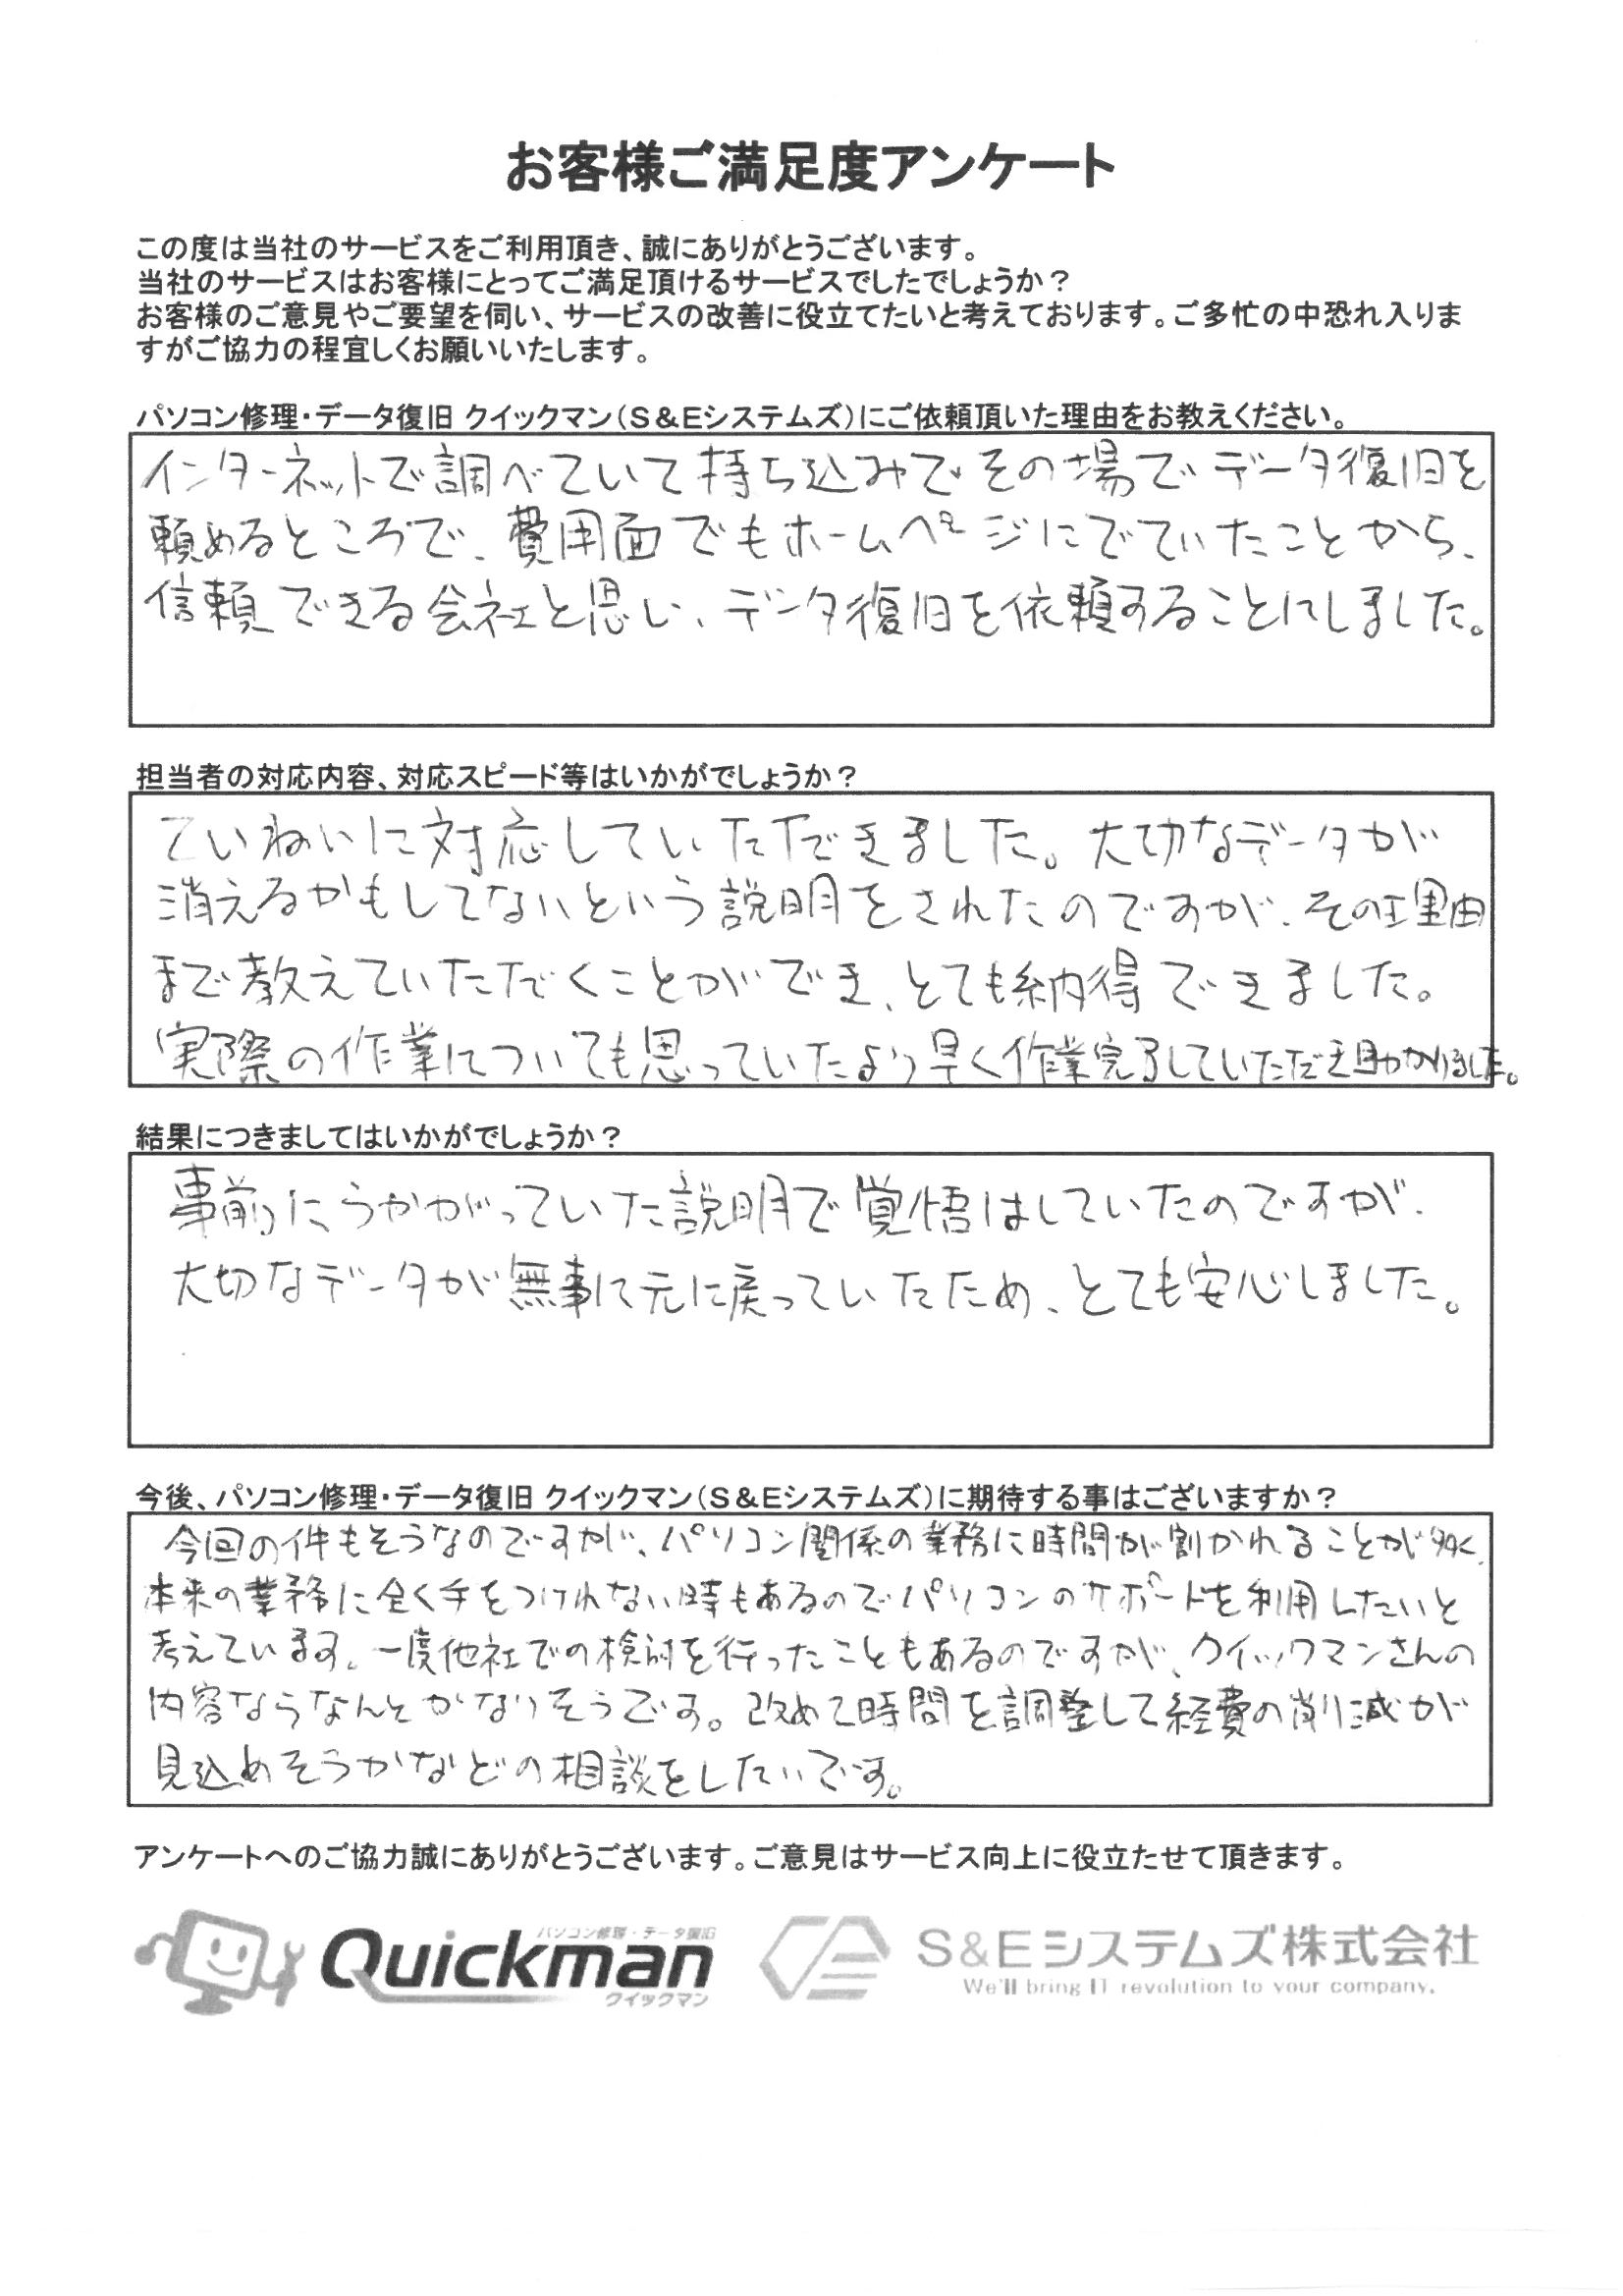 お客様ご満足度アンケート
この度は当社のサービスをご利用頂き、誠にありがとうございます。
当社のサービスはお客様にとってご満足頂けるサービスでしたでしょうか？
お客様のご意見やご要望を伺い、サービスの改善に役立てたいと考えております。ご多忙の中恐れ入りま
すがご協力の程宜しくお願いいたします。
パソコン修理・データ復旧 クイックマン（S＆Eシステムズ）にご依頼頂いた理由をお教えください。
インターネットで調べていて持ち込みで、その場でデータ復旧を
頼めるところで、費用面でもホームページにでていたことから、
信頼できる会社と思い、データ復旧を依頼することにしました。
担当者の対応内容、対応スピード等はいかがでしょうか？
ていねいに対応していただきました。大切なデータが
消えるかもしてないという説明をされたのですが、その理由
まで教えていただくことができ、とても納得できました。
実際の作業についても思っていたより早く作業完了していただき助かりました。
結果につきましてはいかがでしょうか？
事前にうかがっていた説明で覚悟はしていたのですが、
大切なデータが無事に元に戻っていたため、とても安心しました。
今後、パソコン修理・データ復旧 クイックマン（S＆Eシステムズ）に期待する事はございますか？
今回の件もそうなのですが、パソコン関係の業務に時間が割かれることが多く、
本来の業務に全く手をつけれない時もあるのでパソコンのサポートを利用したいと
考えています。一度他社での検討を行ったこともあるのですが、クイックマンさんの
内容ならなんとかなりそうです。改めて時間を調整して経費の削減が
見込めそうかなどの相談をしたいです。
アンケートへのご協力誠にありがとうございます。ご意見はサービス向上に役立たせて頂きます。
パソコン修理・データ復旧
Quickman
クイックマン
S&Eシステムズ株式会社
We'll bring IT revolution to your company.